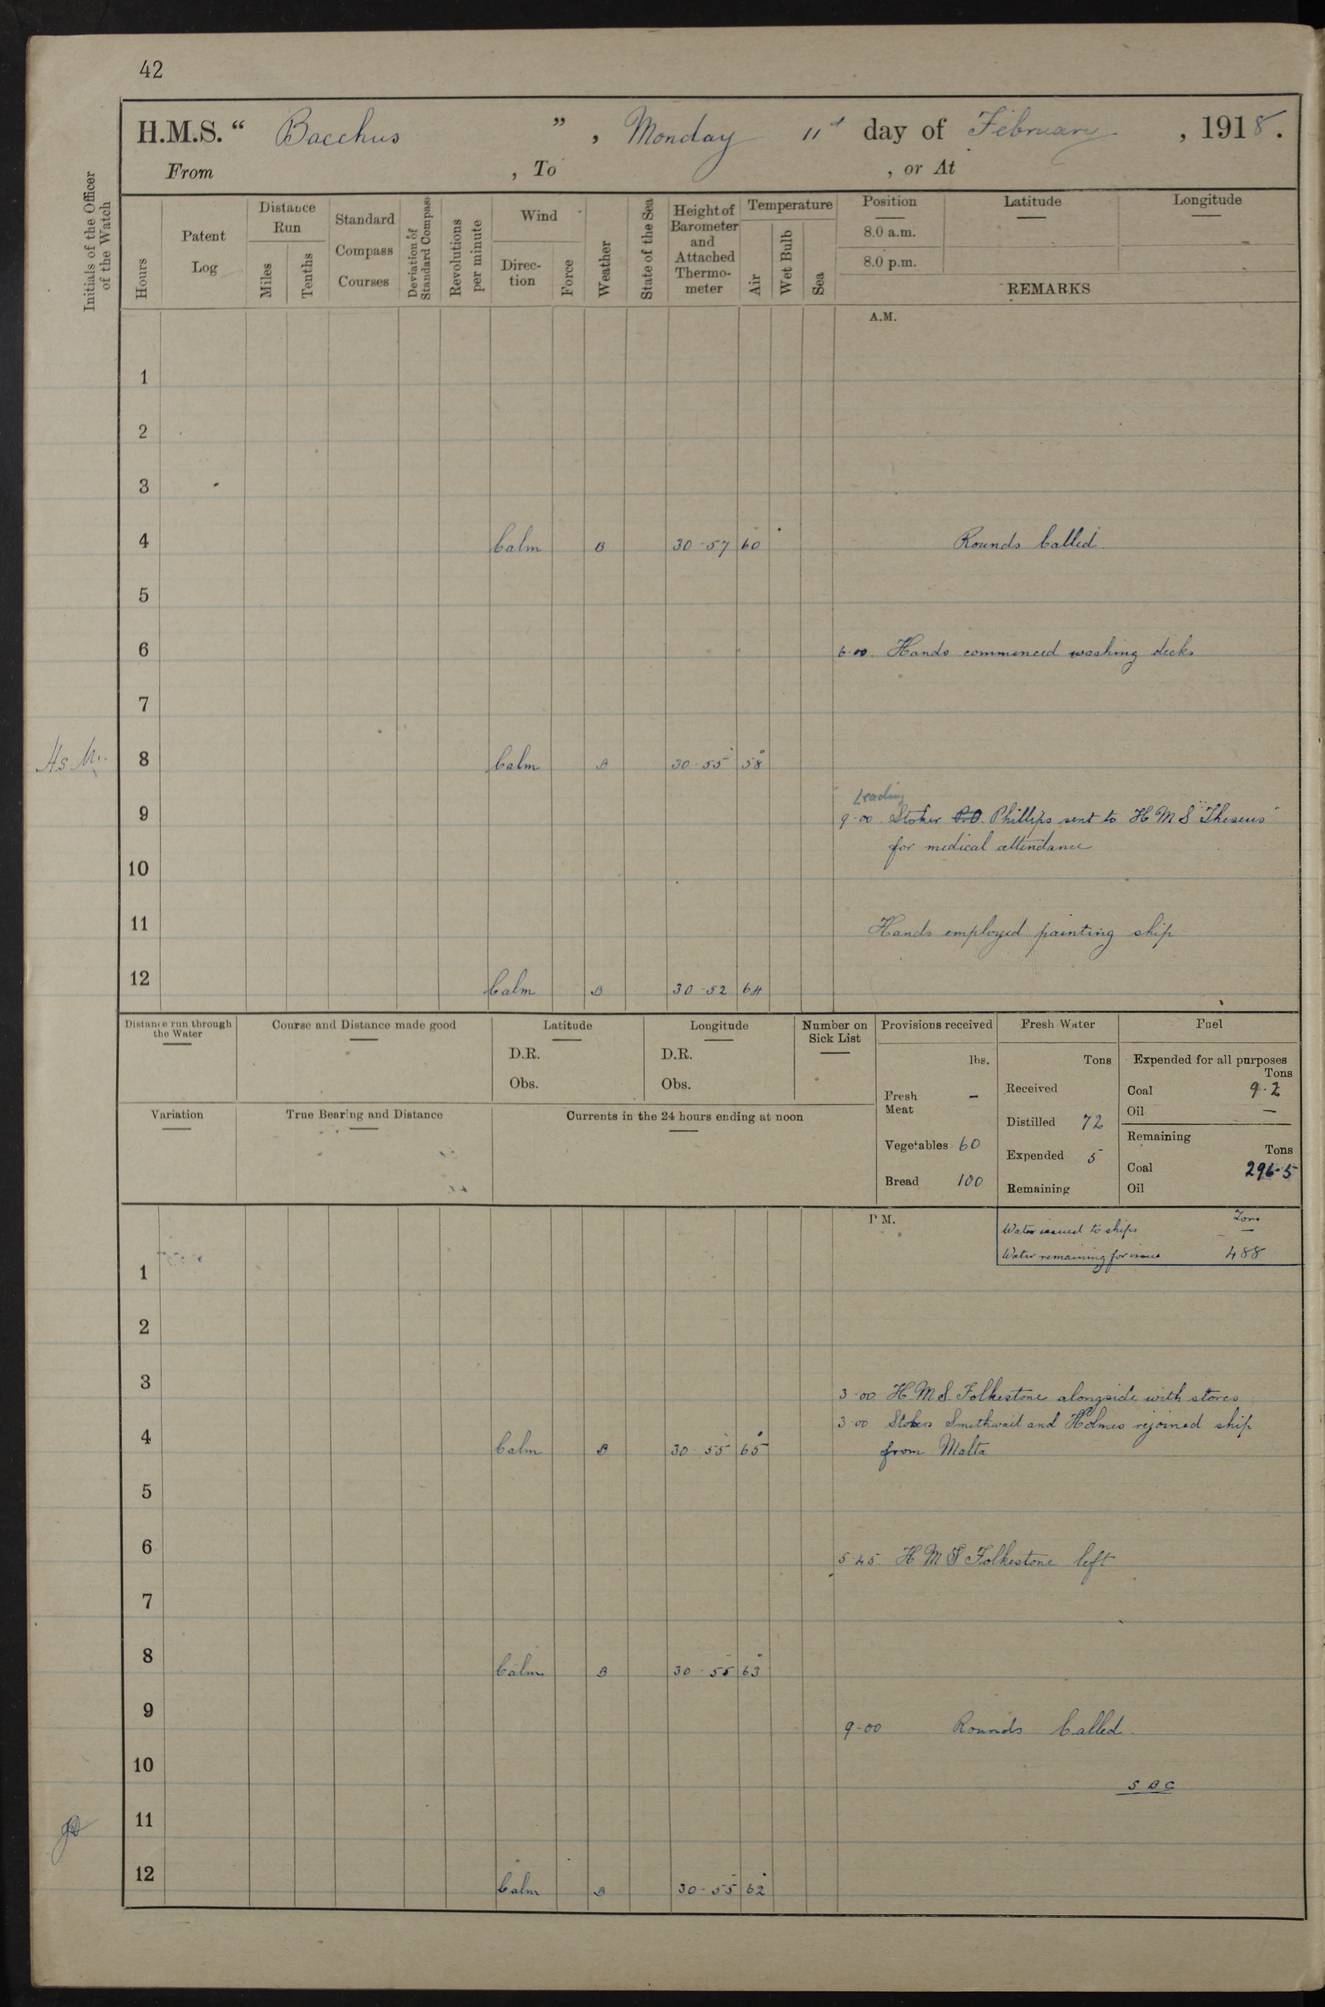 42
H.M.S. “ Bacchus ” , Monday 11 day of February , 1918.
From , To , or At
Initials of the Officer of the Watch
Hours
Patent Log
Distance Run
Miles
Tenths
Standard Compass Courses
Deviation of Standard Compass
Revolutions per minute
Wind
Direction
Force
Weather
State of the Sea
Height of Barometer and Attached Thermometer
Temperature
Air
Wet Bulb
Sea
Position Latitude Longitude
8.0 a.m.
8.0 p.m.
REMARKS
A.M.
1
2
3
4 Calm B 30-57 60 Rounds Called
5
6 6-00 Hands commenced washing decks
7
8 Calm B 30-55 58
Leading
9 9-00 Stoker P.O. Phillips sent to H M S "Theseus"
for medical attendance
10
11 Hands employed painting ship
12 Calm B 30-52 64
Distance run through the Water
Course and Distance made good
Latitude
D.R.
Obs.
Longitude
D.R.
Obs.
Number on Sick List
Variation
True Bearing and Distance
Currents in the 24 hours ending at noon
Provisions received
lbs.
Fresh Meat –
Vegetables 60
Bread 100
Fresh Water
Tons
Received
Distilled 72
Expended 5
Remaining
Fuel
Expended for all purposes
Tons
Coal 9.2
Oil —
Remaining
Tons
Coal 296-5
Oil
P.M.
Tons
Water issued to ships —
Water remaining for issue 488
1
2
3 3-00 H.M.S. Folkestone alongside with stores
3-00 Stokers Smithwait and Holmes rejoined ship
4 Calm B 30-55 65 from Malta
5
6 5-45 H M S Folkestone left
7
8 Calm B 30-55 63
9 9-00 Rounds Called
10 S B C
11
12 Calm B 30-55 62